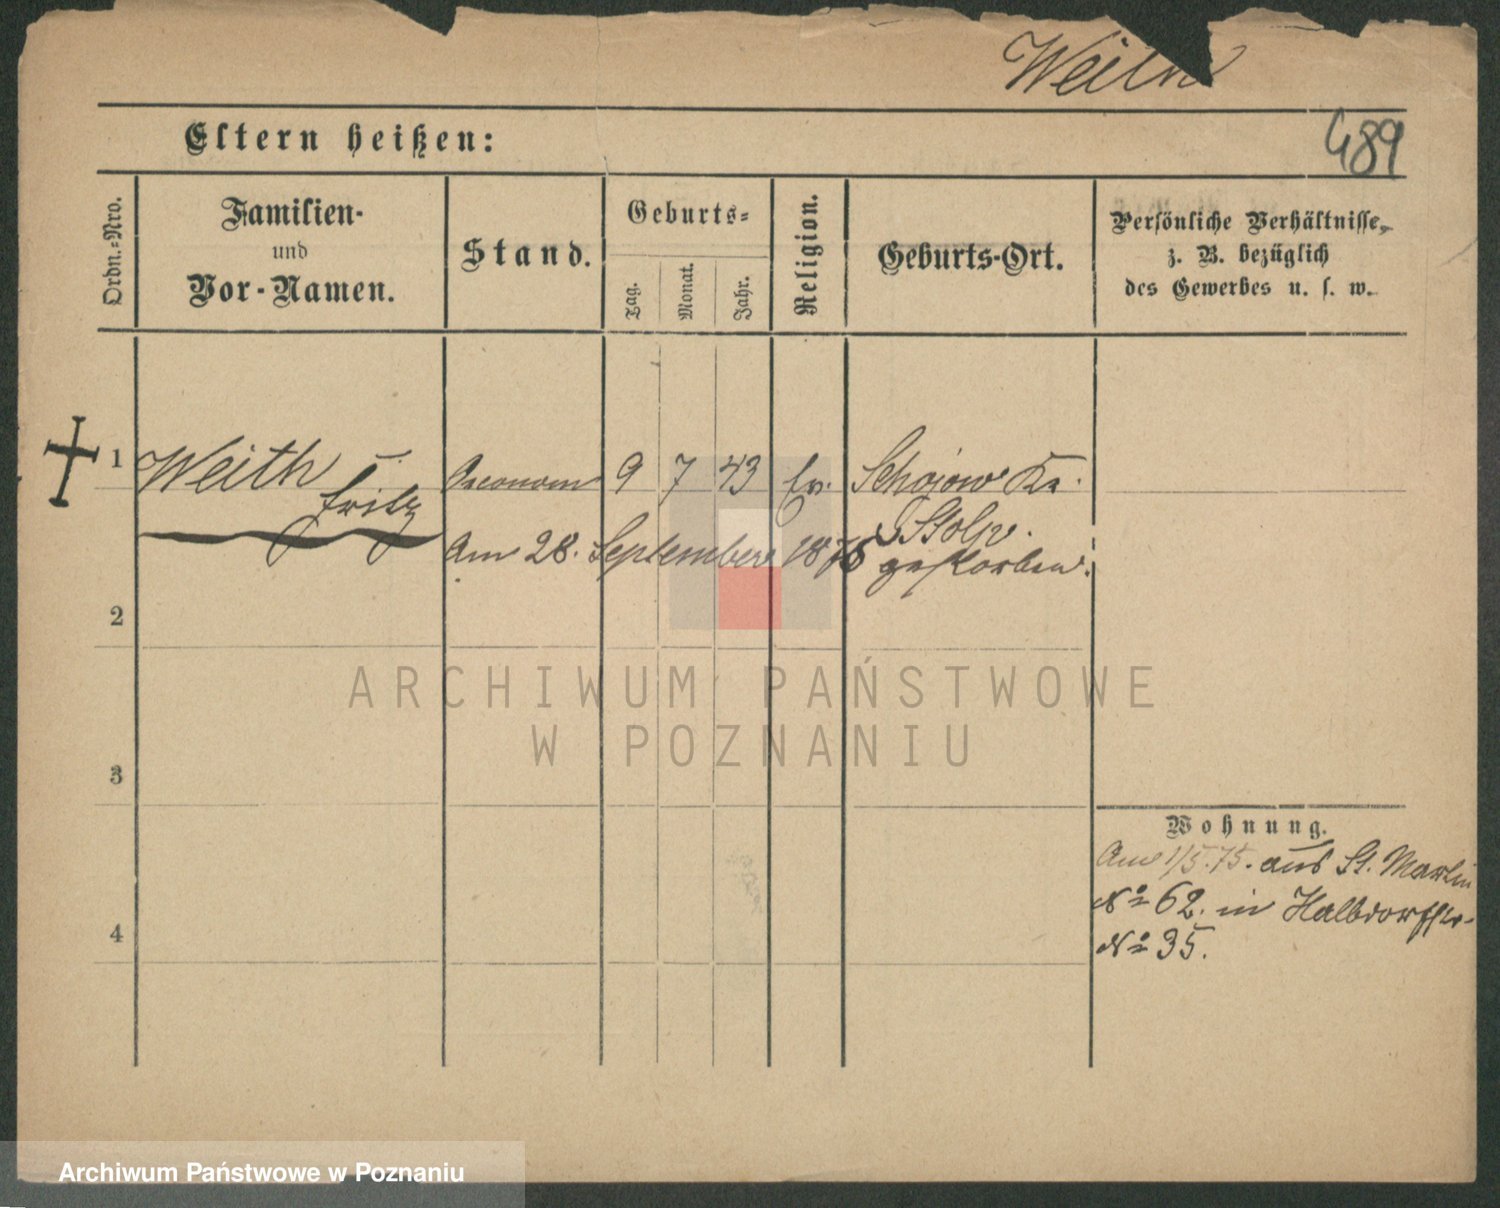 Weith
Eltern heißen:
489
Ordn.-Nro.
Familien-
und
Vor-Namen.
Stand.
Geburts-
Tag.
Monat.
Jahr.
Religion.
Geburts-Ort.
Persönliche Verhältnisse,
z. B. bezüglich
des Gewerbes u. s. w.
1 Weith Oeconom 9 7 43 Ev. Schojow Kr.
Fritz Stolp.
Am 28. September 1878 gestorben.
2
3
4
Wohnung.
Am 1/5.75. aus St. Martin
No 62. in Halbdorfstr.
No 35.
ARCHIWUM PAŃSTWOWE
W POZNANIU
Archiwum Państwowe w Poznaniu